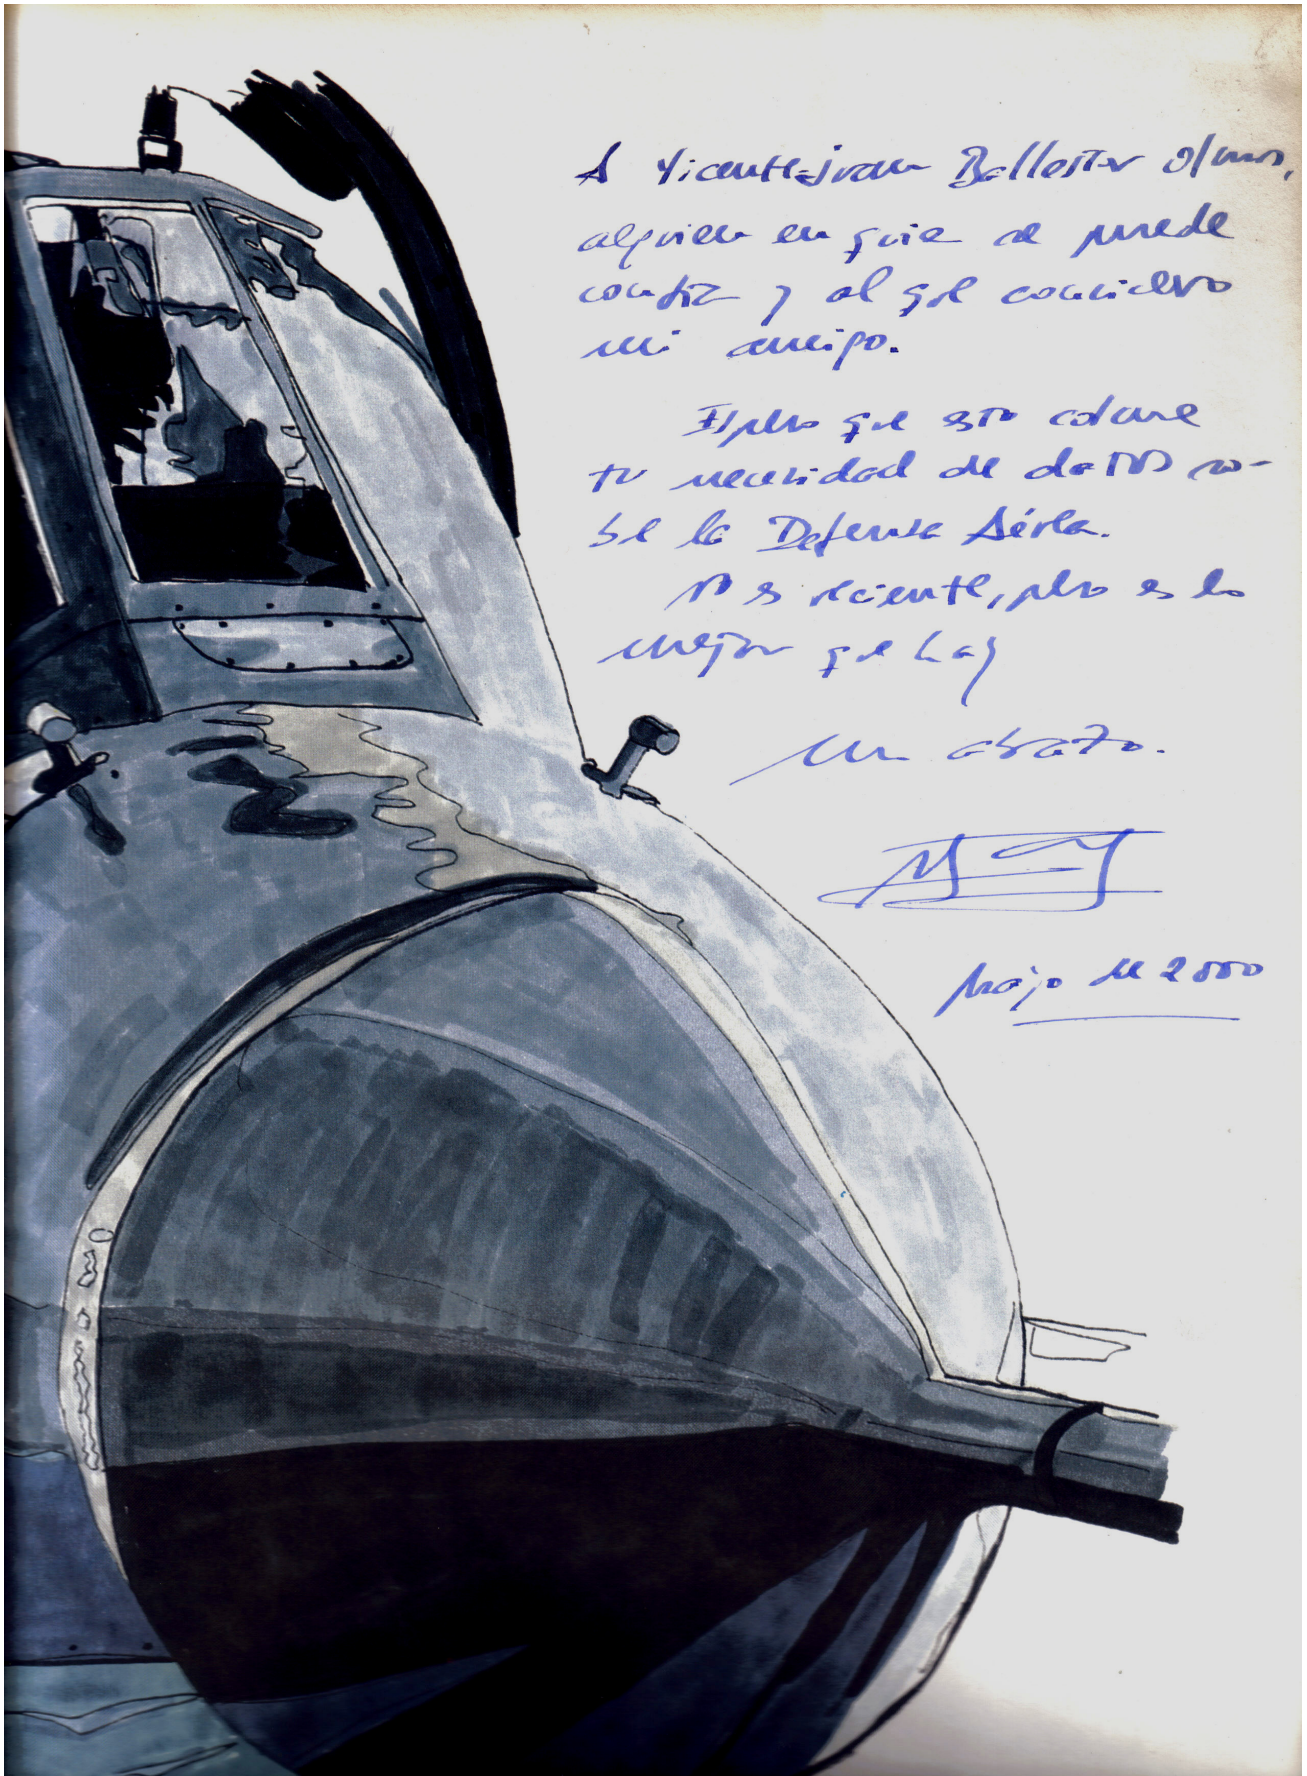 A Vicente-Juan Ballester Olmos,
alguien en quien se puede
confiar y al que considero
mi amigo.
Espero que esto colme
tu necesidad de datos so-
bre la Defensa Aérea.
No es reciente, pero es lo
mejor que hay
Un abrazo.
Mayo de 2000